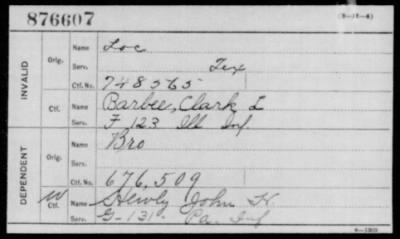 876607
(3-17-6)
INVALID
Orig.
Name Loc
Serv. Tex
Ctf. No. 748565
Ctf.
Name Barbee, Clark L
Serv. F 123 Ill Inf
DEPENDENT
Orig.
Name Bro
Serv.
Ctf. No. 676,509
W
Ctf.
Name Hewly John H.
Serv. G-131 Pa. Inf